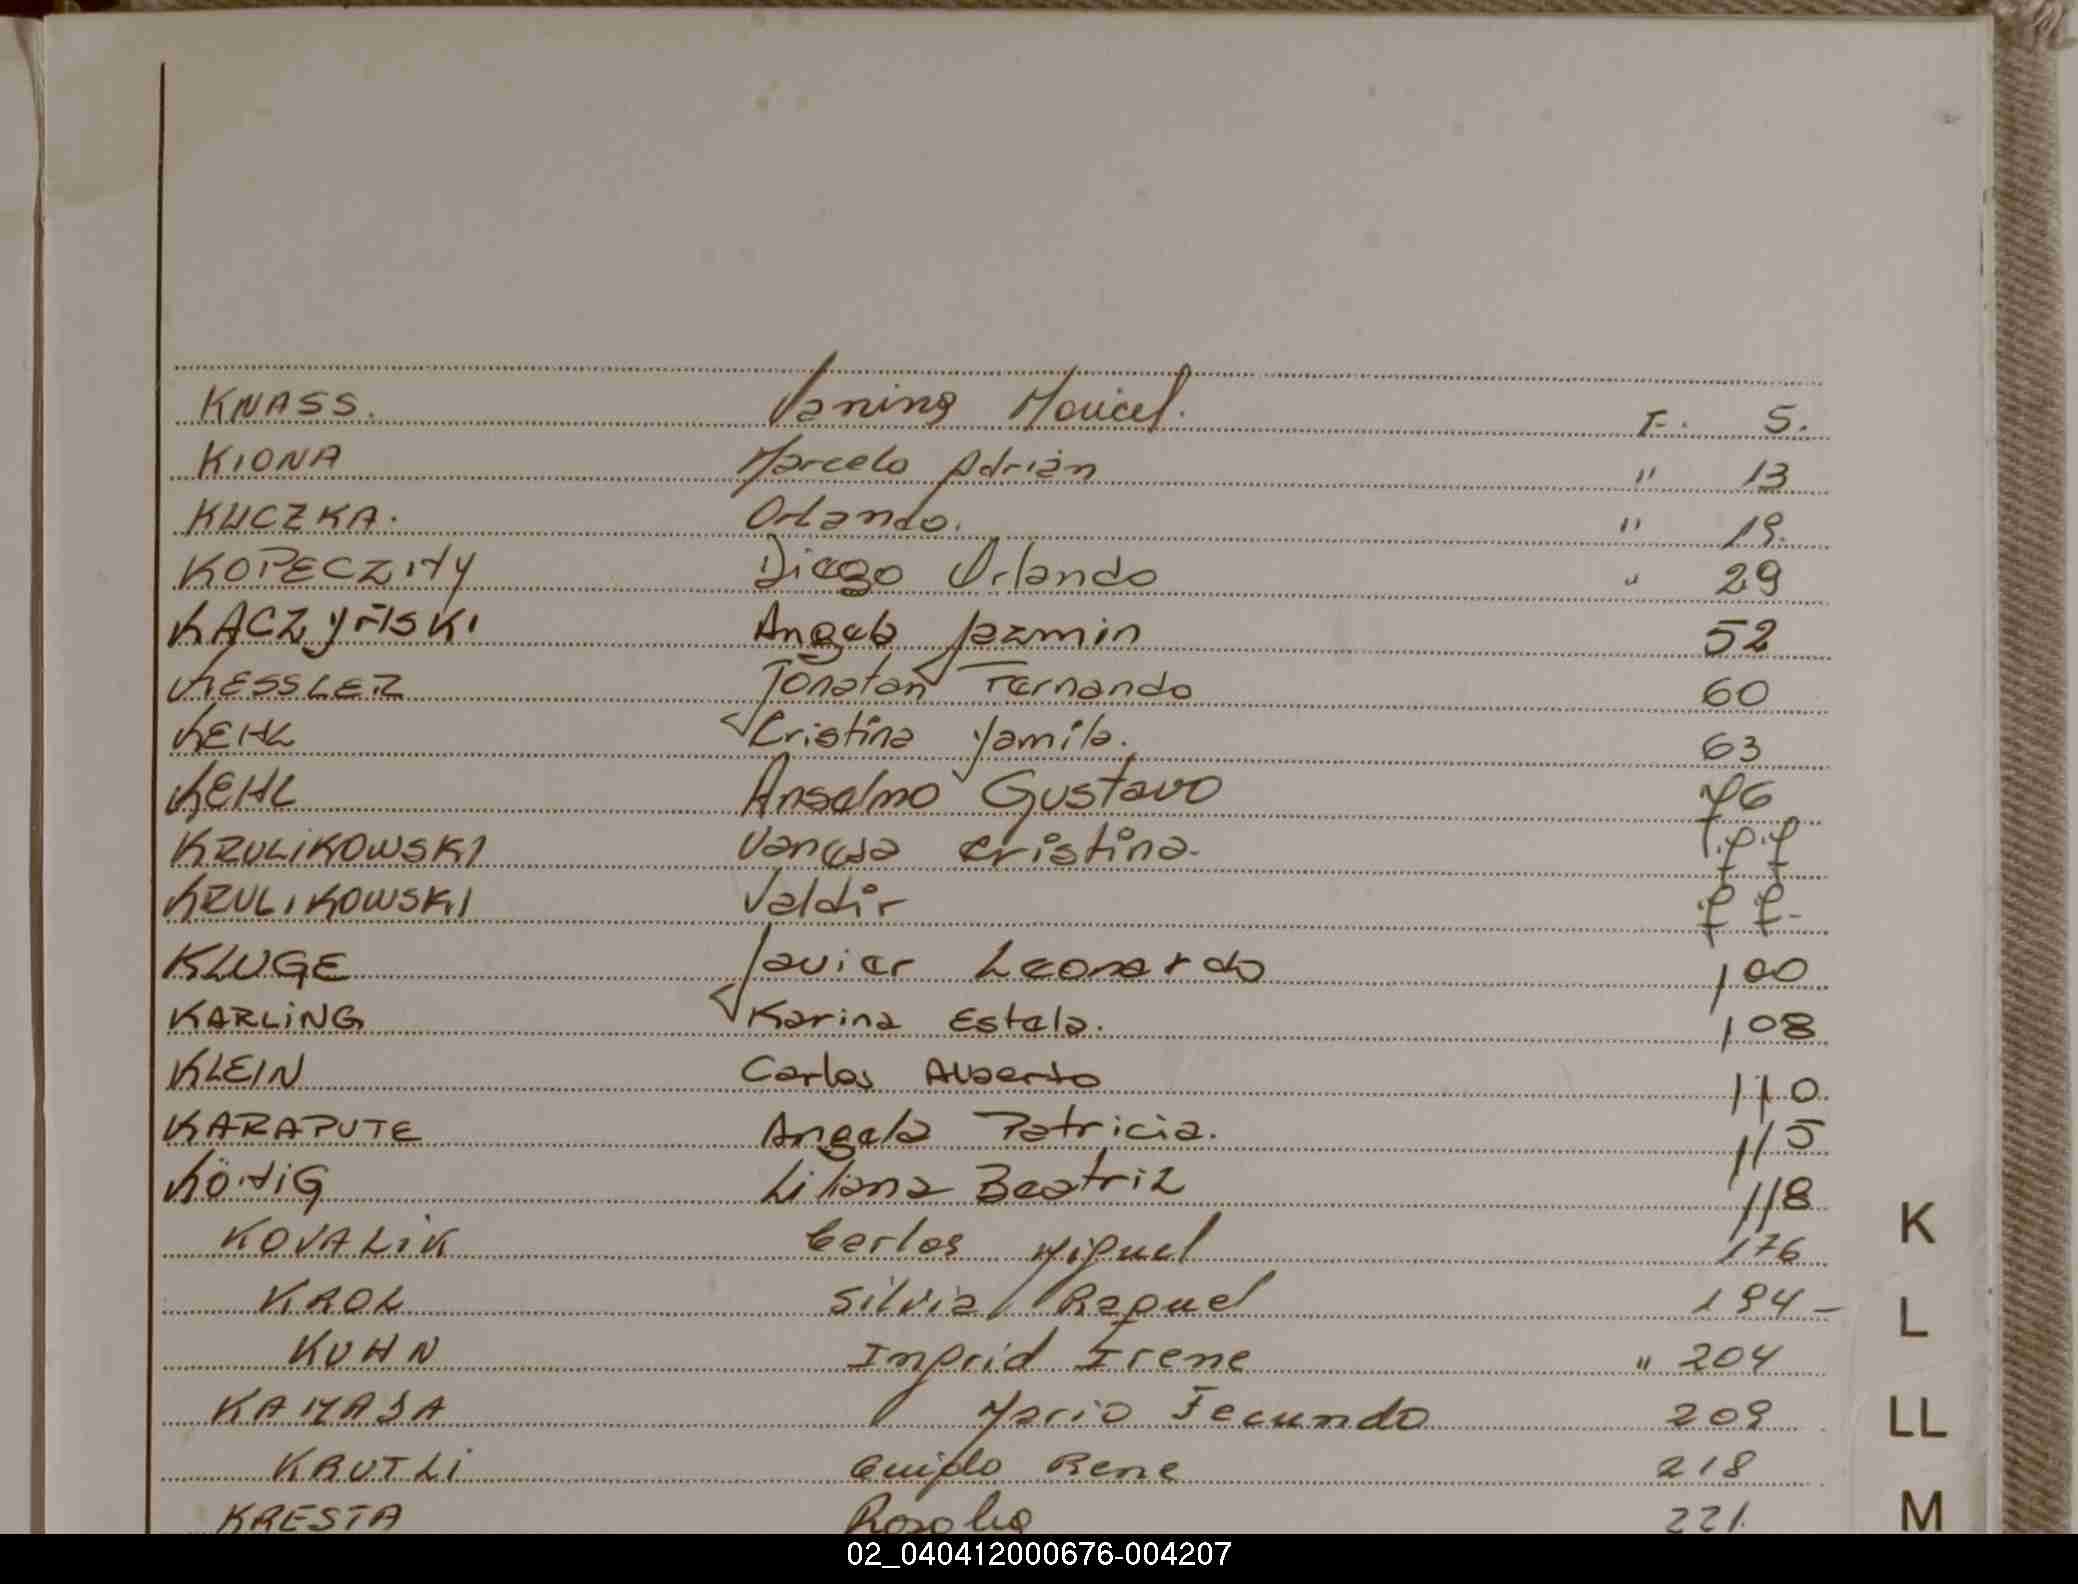 KNASS. Vanina Maricel. F. 5.
KIONA Marcelo Adrián " 13
KUCZKA. Orlando. " 19.
KOPECZNY Diego Orlando " 29
KACZYÑSKI Angela Jazmin 52
KESSLER Jonatan Fernando 60
KEHL Cristina Yamila. 63
KEHL Anselmo Gustavo 76
KRULIKOWSKI Vanesa Cristina.
KRULIKOWSKI Valdir
KLUGE Javier Leonardo 100
KARLING Karina Estela. 108
KLEIN Carlos Alberto 110.
KARAPUTE Angela Patricia. 115
KÖNIG Liliana Beatriz 118
KOVALIK Carlos Miguel 176
KROL Silvia Raquel 194-
KUHN Ingrid Irene " 204
KAMADA Mario Fecundo 209
KRUTLI Guido Rene 218
KRESTA 221.
K
L
LL
M
02_040412000676-004207